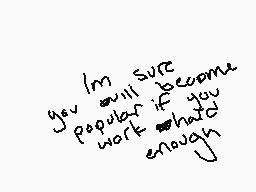 Im sure
you will become
popular if you
work hard
enough